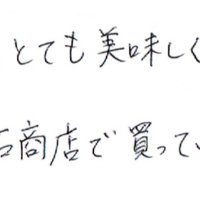 とても美味しく
石商店で買ってい